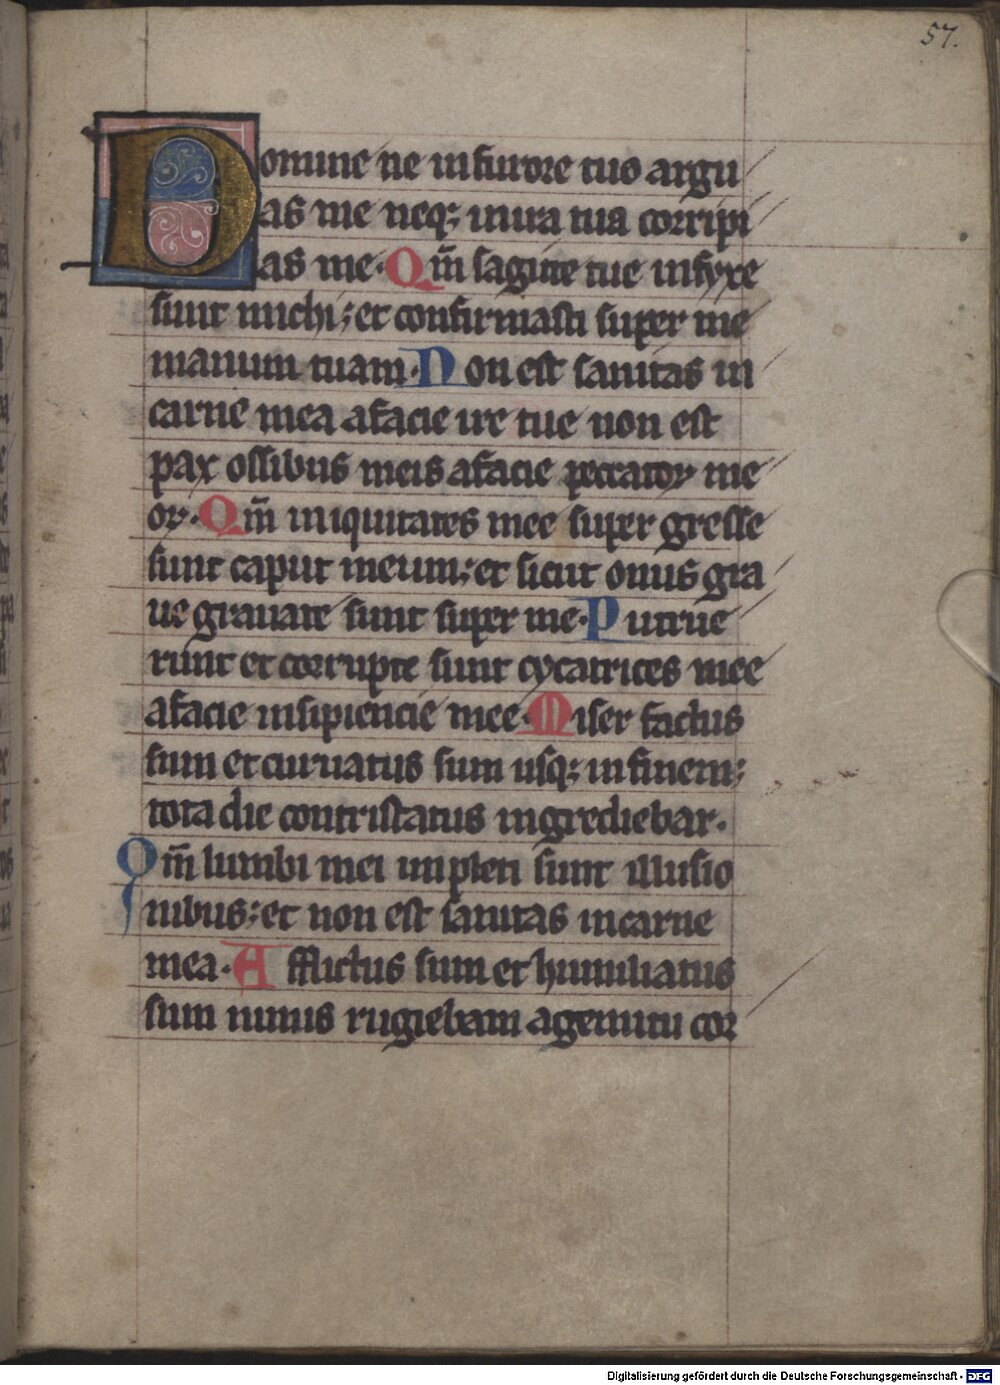 57.
Domine ne in furore tuo argu
as me neq; in ira tua corripi
as me. Qm̄ sagitte tue infyxe
sunt michi; et confirmasti super me
manum tuam. Non est sanitas in
carne mea afacie ire tue non est
pax ossibus meis afacie peccatoꝝ me
oꝝ. Qm̄ iniquitates mee super gresse
sunt caput meum; et sicut onus gra
ue grauate sunt super me. Putrue
runt et corrupte sunt cycatrices mee
afacie insipiencie mee. Miser factus
sum et curuatus sum usq; in finem;
tota die contristatus ingrediebar.
Qm̄ lumbi mei impleti sunt illusio
nibus; et non est sanitas in carne
mea. Afflictus sum et humiliatus
sum nimis rugiebam agemitu cor
Digitalisierung gefördert durch die Deutsche Forschungsgemeinschaft - DFG